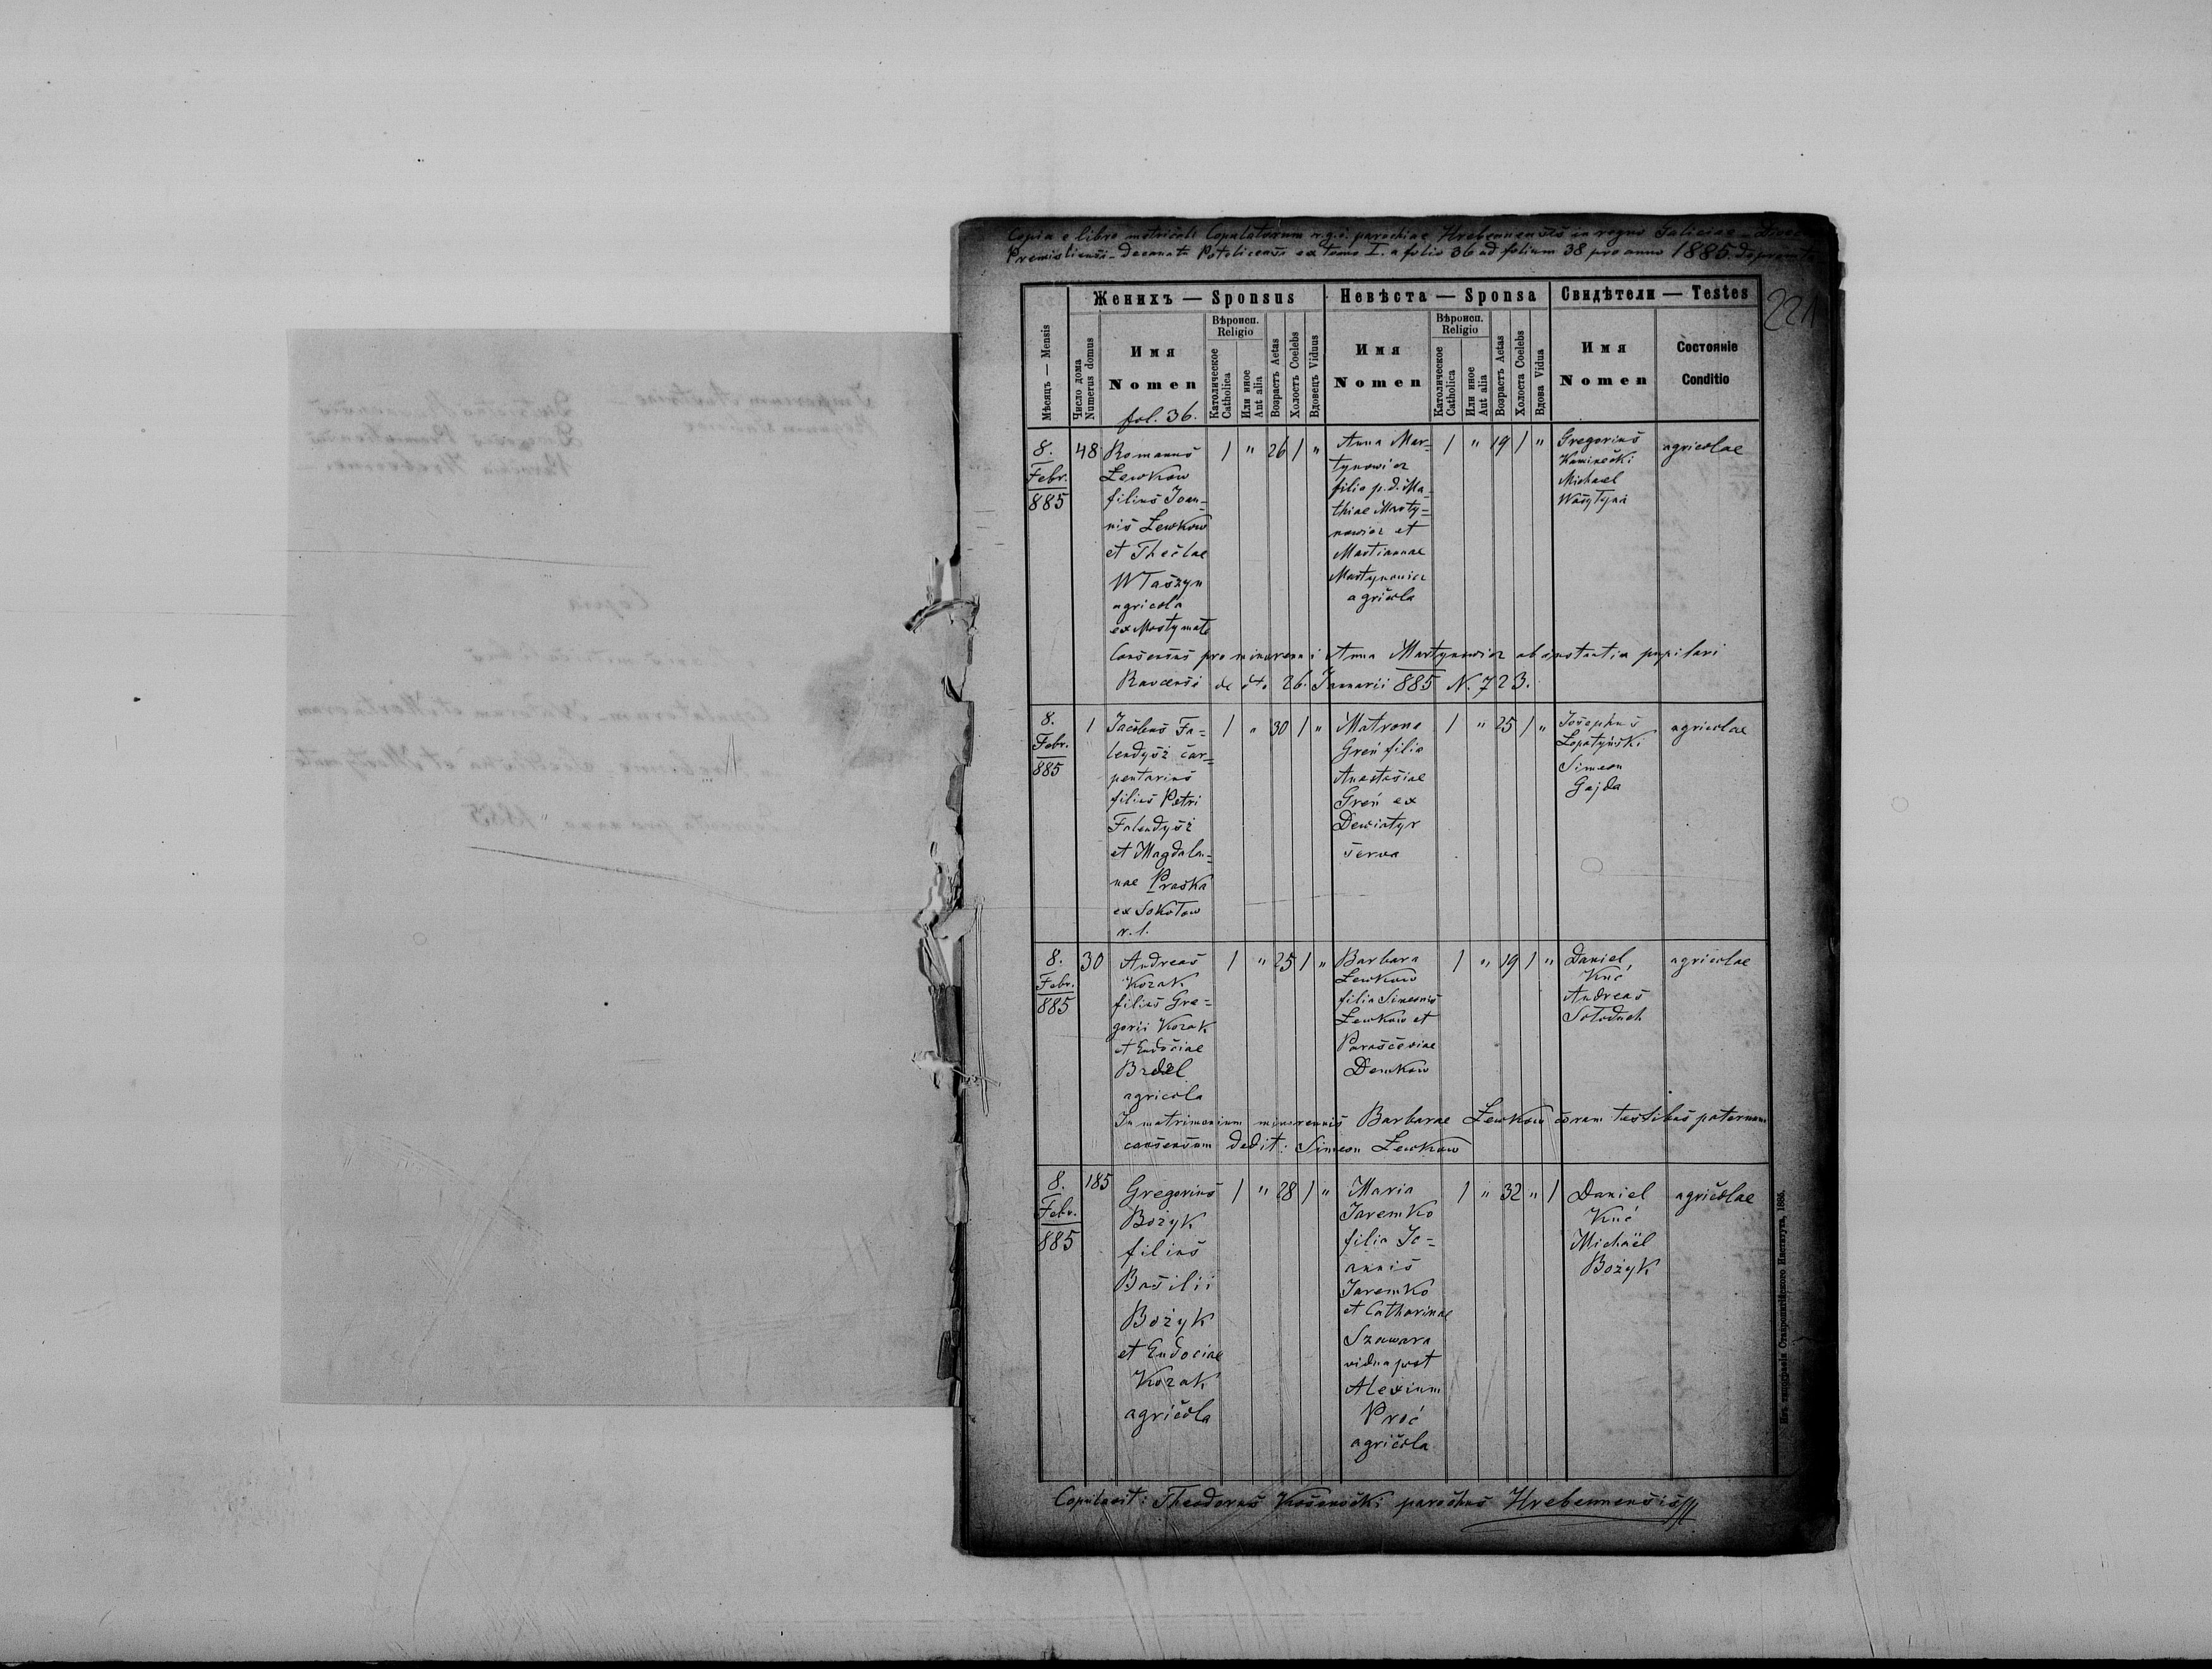 Copia e libro metricali Copulatorum r. g. c. parochiae Hrebennensis in regno Galiciae - Dioec
Premisliensi - Decanatu Potolicensi ex tomo I. a folio 36 ad folium 38 pro anno 1885. deprompta
221
Женихъ — Sponsus
Невѣста — Sponsa
Свидѣтели — Testes
Мѣсяцъ — Mensis
Число дома
Numerus domus
Имя
Nomen
fol. 36.
Вѣроисп.
Religio
Католическое
Catholica
Или иное
Aut alia
Возрастъ Aetas
Холостъ Coelebs
Вдовецъ Viduus
Имя
Nomen
Вѣроисп.
Religio
Католическое
Catholica
Или иное
Aut alia
Возрастъ Aetas
Холоста Coelebs
Вдова Vidua
Имя
Nomen
Состояніе
Conditio
8.
Febr.
885
48
Romanus
Lewkow
filius Joan=
nis Lewkow
et Theclae
Wlaszyn
agricola
ex Mosty mate
1 " 26 1 "
Anna Mar=
tynowicz
filia p. d. Ma=
thiae Marty=
nowicz et
Martianae
Martynowicz
agricola
1 " 19 1 "
Gregorius
Kaminecki
Michael
agricolae
Consensus pro minorenni Anna Martynowicz ab instantia pupilari
Ravensi de dto 26. Januarii 885 N. 723.
8.
Febr.
885
1
Jacobus Fa=
lendysz car=
pentarius
filius Petri
Falendysz
et Magdale=
nae Praska
ex Sokołow
n. 1.
1 " 30 1 "
Matrona
Greń filia
Anastasiae
Greń ex
Dewiatyr
serva
1 " 25 1 "
Josephus
Łopatyński
Simeon
Gajda
agricolae
8.
Febr.
885
30
Andreas
Kozak
filius Gre=
gorii Kozak
et Eudociae
agricola
1 " 25 1 "
Barbara
Lewkow
filia Simeonis
Lewkow et
Parasceviae
Demkow
1 " 19 1 "
Daniel
Kuć
Andreas
Sołoduch
agricolae
In matrimonium minorennis Barbarae Lewkow coram testibus paternum
consensum dedit: Simeon Lewkow
8.
Febr.
885
185
Gregorius
Bożyk
filius
Basilii
Bożyk
et Eudociae
Kozak
agricola
1 " 28 1 "
Maria
Jaremko
filia Jo=
annis
Jaremko
et Catharinae
Szawara
vidua post
Alexium
Proć
agricola
1 " 32 " 1
Daniel
Kuć
Michaël
Bożyk
agricolae
Copulavit: Theodorus Kosonocki parochus Hrebennensis
Изъ типографіи Ставропигійского Института, 1886.